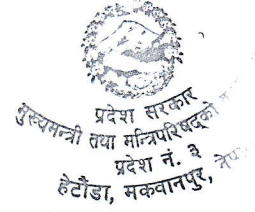 प्रदेश सरकार
मुख्यमन्त्री तथा मन्त्रिपरिषद्को
प्रदेश नं. ३
हेटौंडा, मकवानपुर,